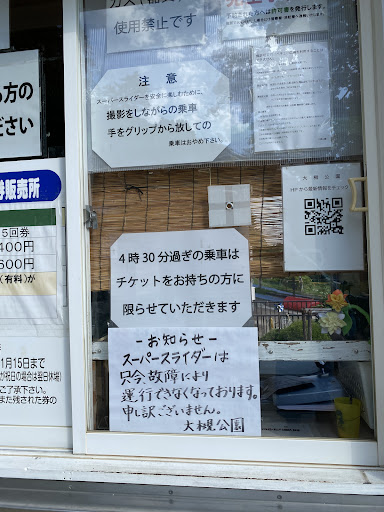 使用禁止です
注 意
スーパースライダーを安全に楽しむために、
撮影をしながらの乗車
手をグリップから放しての
乗車はおやめ下さい。
の方の
ださい
券販売所
5回券
400円
600円
(有料)が
1月15日まで
が祝日の場合は翌日休場)
ご了承下さい。
また残された券の
大槻公園
HPから最新情報をチェック
4時30分過ぎの乗車は
チケットをお持ちの方に
限らせていただきます
-お知らせ-
スーパースライダーは
只今、故障により
運行できなくなっております。
申し訳ございません。
大槻公園